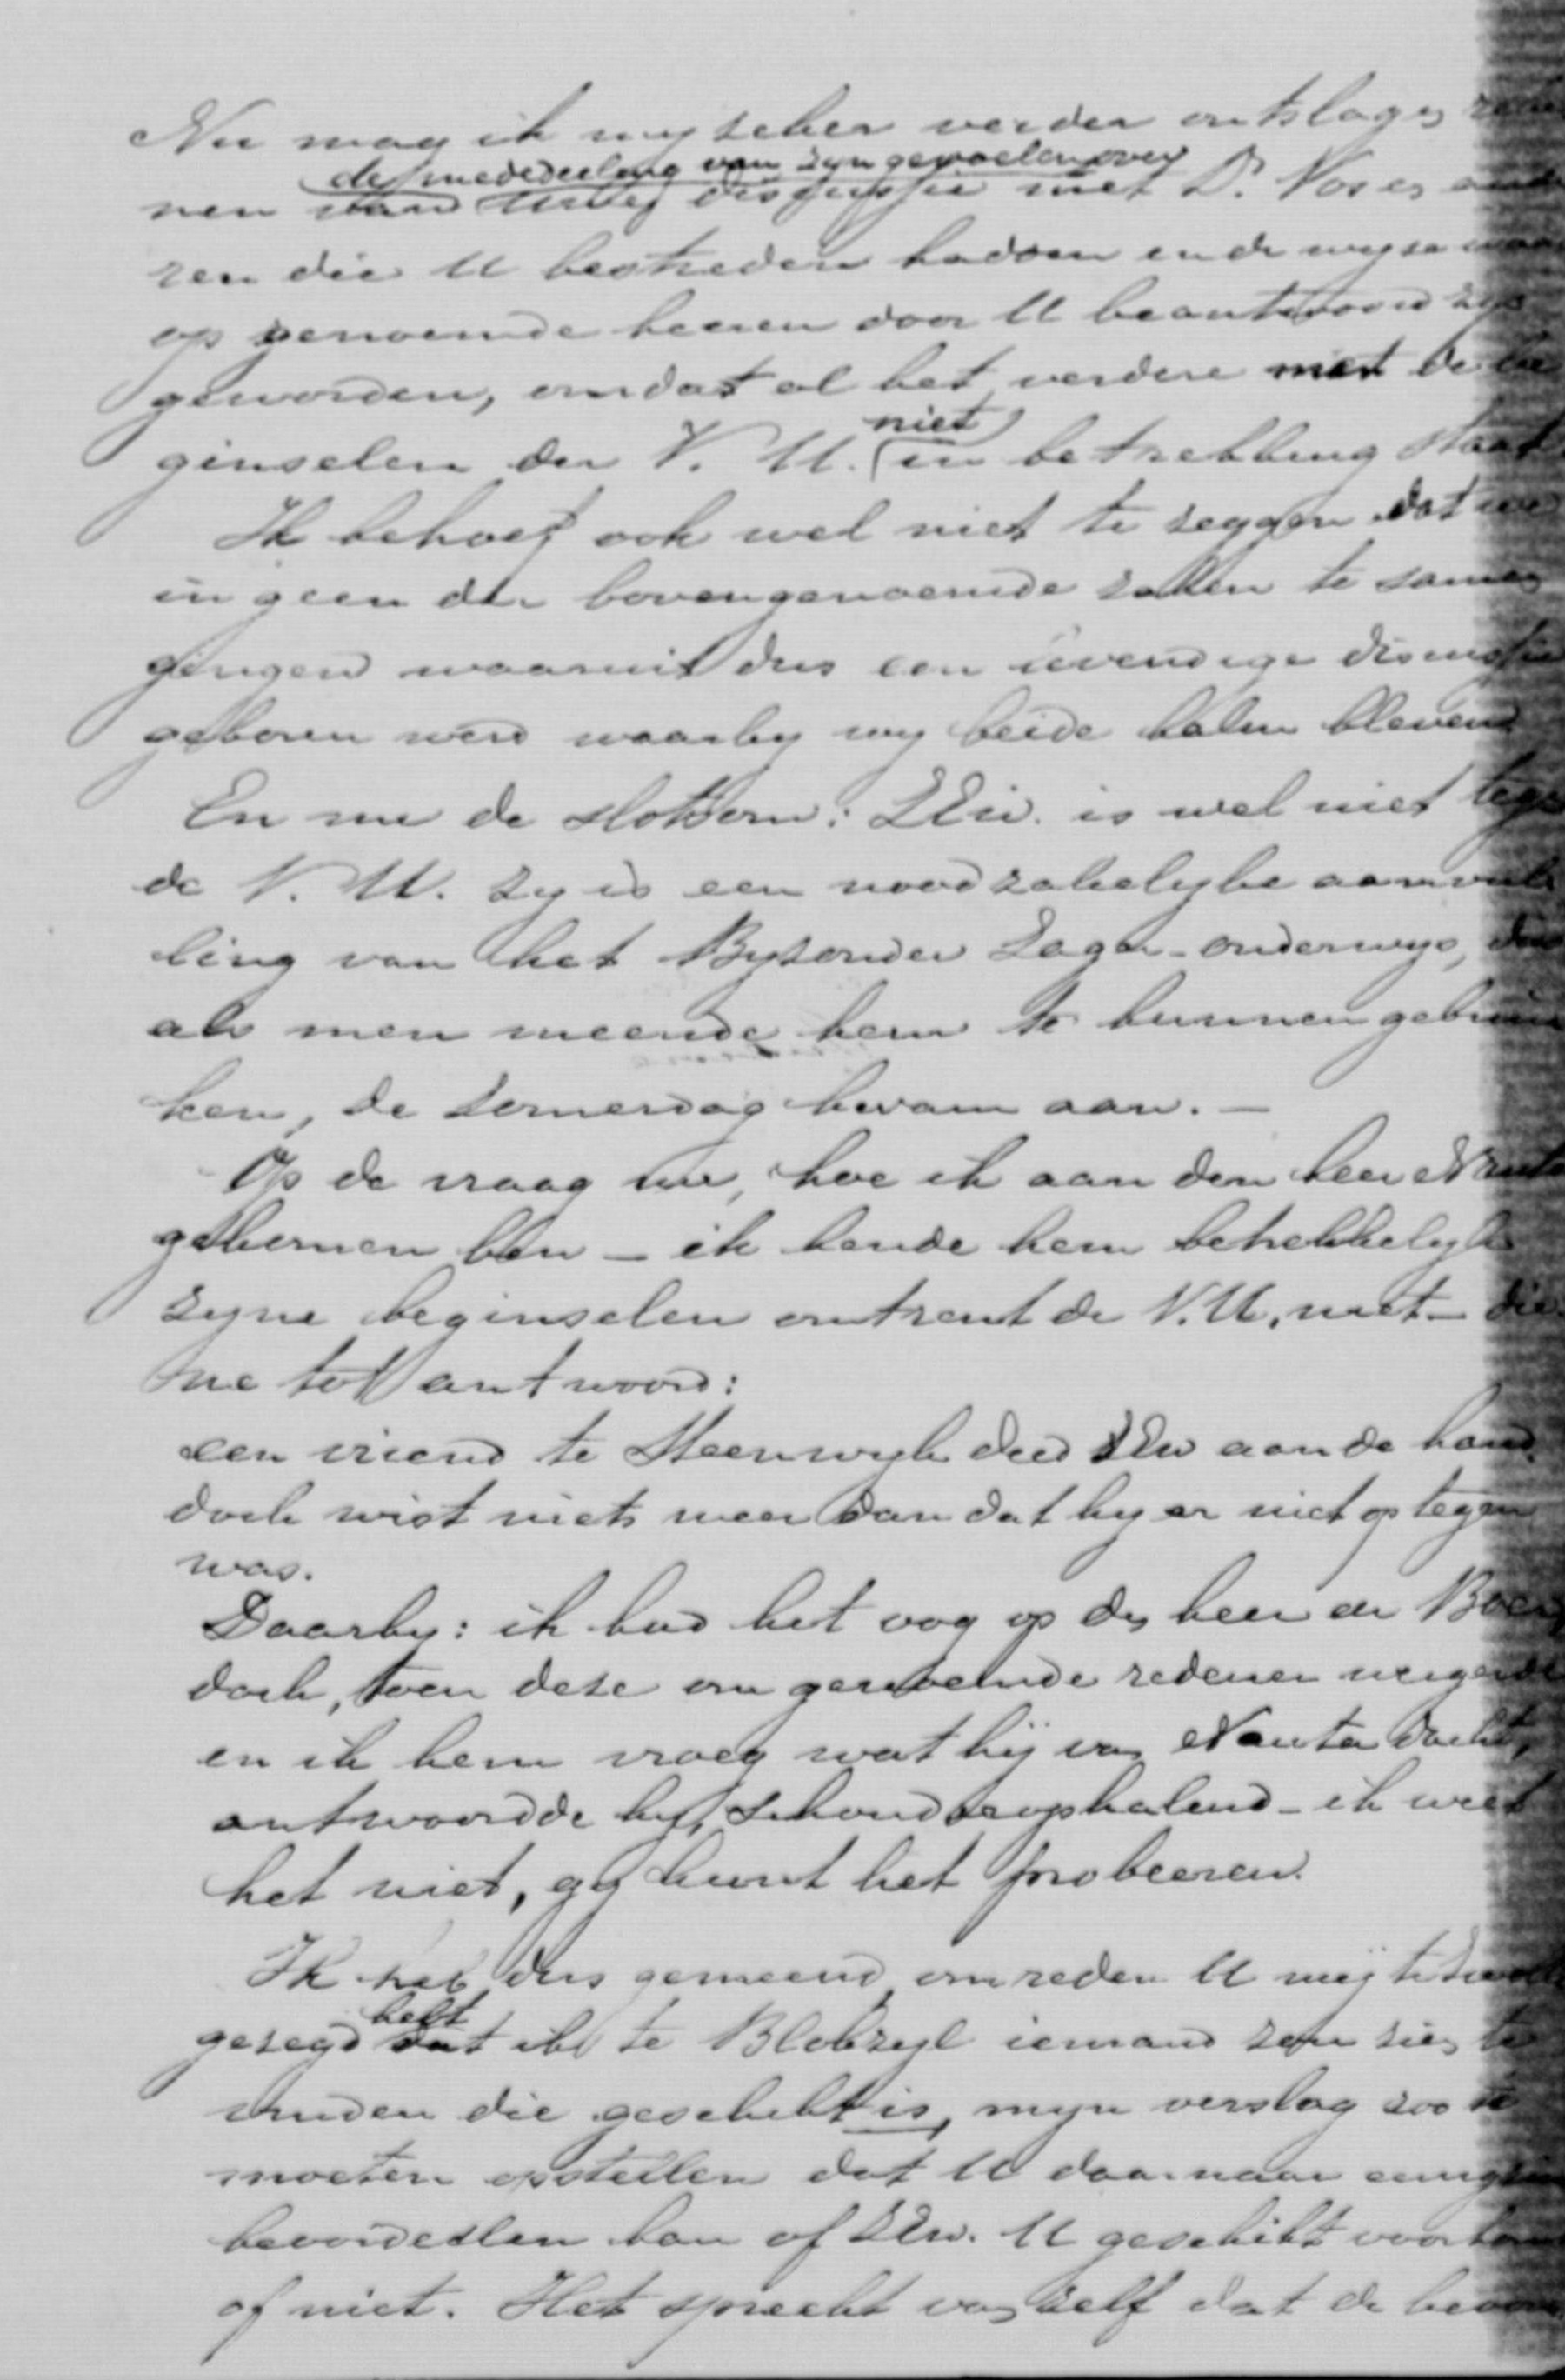 Nu mag ik my zeker verder ontslagen
de mededeeling van zyn gevoelen over
nen van Uwe discussie met Dr. Vos en
ren die U bestreden hadden en de wyze
op genoemde heeren door U beantwoord zyn
geworden, omdat al het verdere met de be
niet
ginselen der V. U. in betrekking staat
Ik behoef ook wel niet te zeggen dat we
in geen der bovengenoemde zaken te samen
gingen waaruit dus een levendige discussie
geboren werd waarby wy beide kalm bleven
En nu de slotsom: ZEw. is wel niet tegen
de V. U. zy is een noodzakelyke aanvul
ling van het Byzonder Lager-onderwys,
als men meende hem te kunnen gebrui
ken, de Zomerdag kwam aan. —
Op de vraag nu, hoe ik aan den heer Nauta
gekomen ben — ik kende hem betrekkelyk
zyne beginselen omtrent de V.U. niet — die
ne tot antwoord:
een vriend te Steenwyk deed ZEw aan de hand
doch wist niets meer dan dat hy er niet op tegen
was.
Daarby: ik had het oog op den heer de Boer
doch, toen deze om genoemde redenen weigerde
en ik hem vroeg wat hij van Nauta dacht,
antwoordde hy, schouderophalend — ik weet
het niet, gy kunt het probeeren.
Ik heb dus gemeend omreden U mij te
hebt
gezegd dat ik te Blokzyl iemand zou zien te
vinden die geschikt is, myn verslag zoo te
moeten opstellen dat U daarnaar eenigzins
beoordeelen kan of ZEw. U geschikt voorkomt
of niet. Het spreekt van zelf dat de